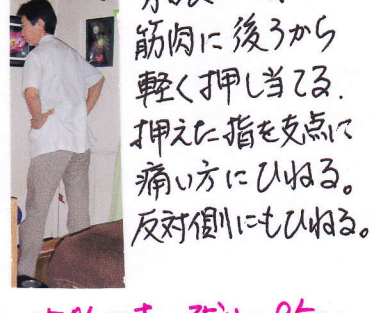 筋肉に後ろから
軽く押し当てる.
押えた指を支点に
痛い方にひねる。
反対側にもひねる。